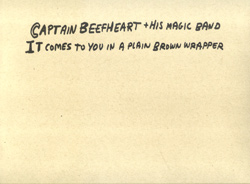 CAPTAIN BEEFHEART + HIS MAGIC BAND
IT COMES TO YOU IN A PLAIN BROWN WRAPPER